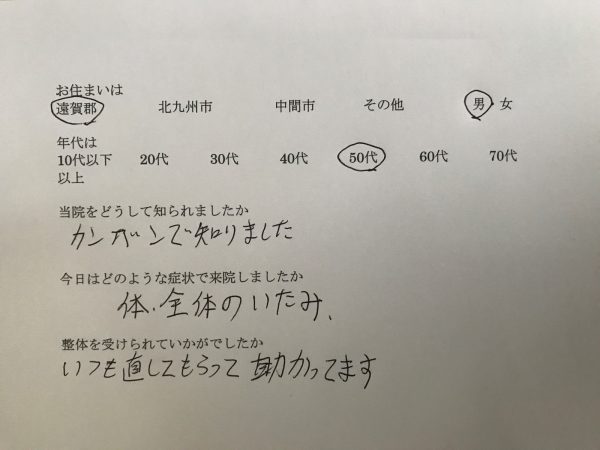 お住まいは
遠賀郡 北九州市 中間市 その他 男・女
年代は
10代以下 20代 30代 40代 50代 60代 70代
以上
当院をどうして知られましたか
カンバンで知りました
今日はどのような症状で来院しましたか
体・全体のいたみ、
整体を受けられていかがでしたか
いつも直してもらって助かってます